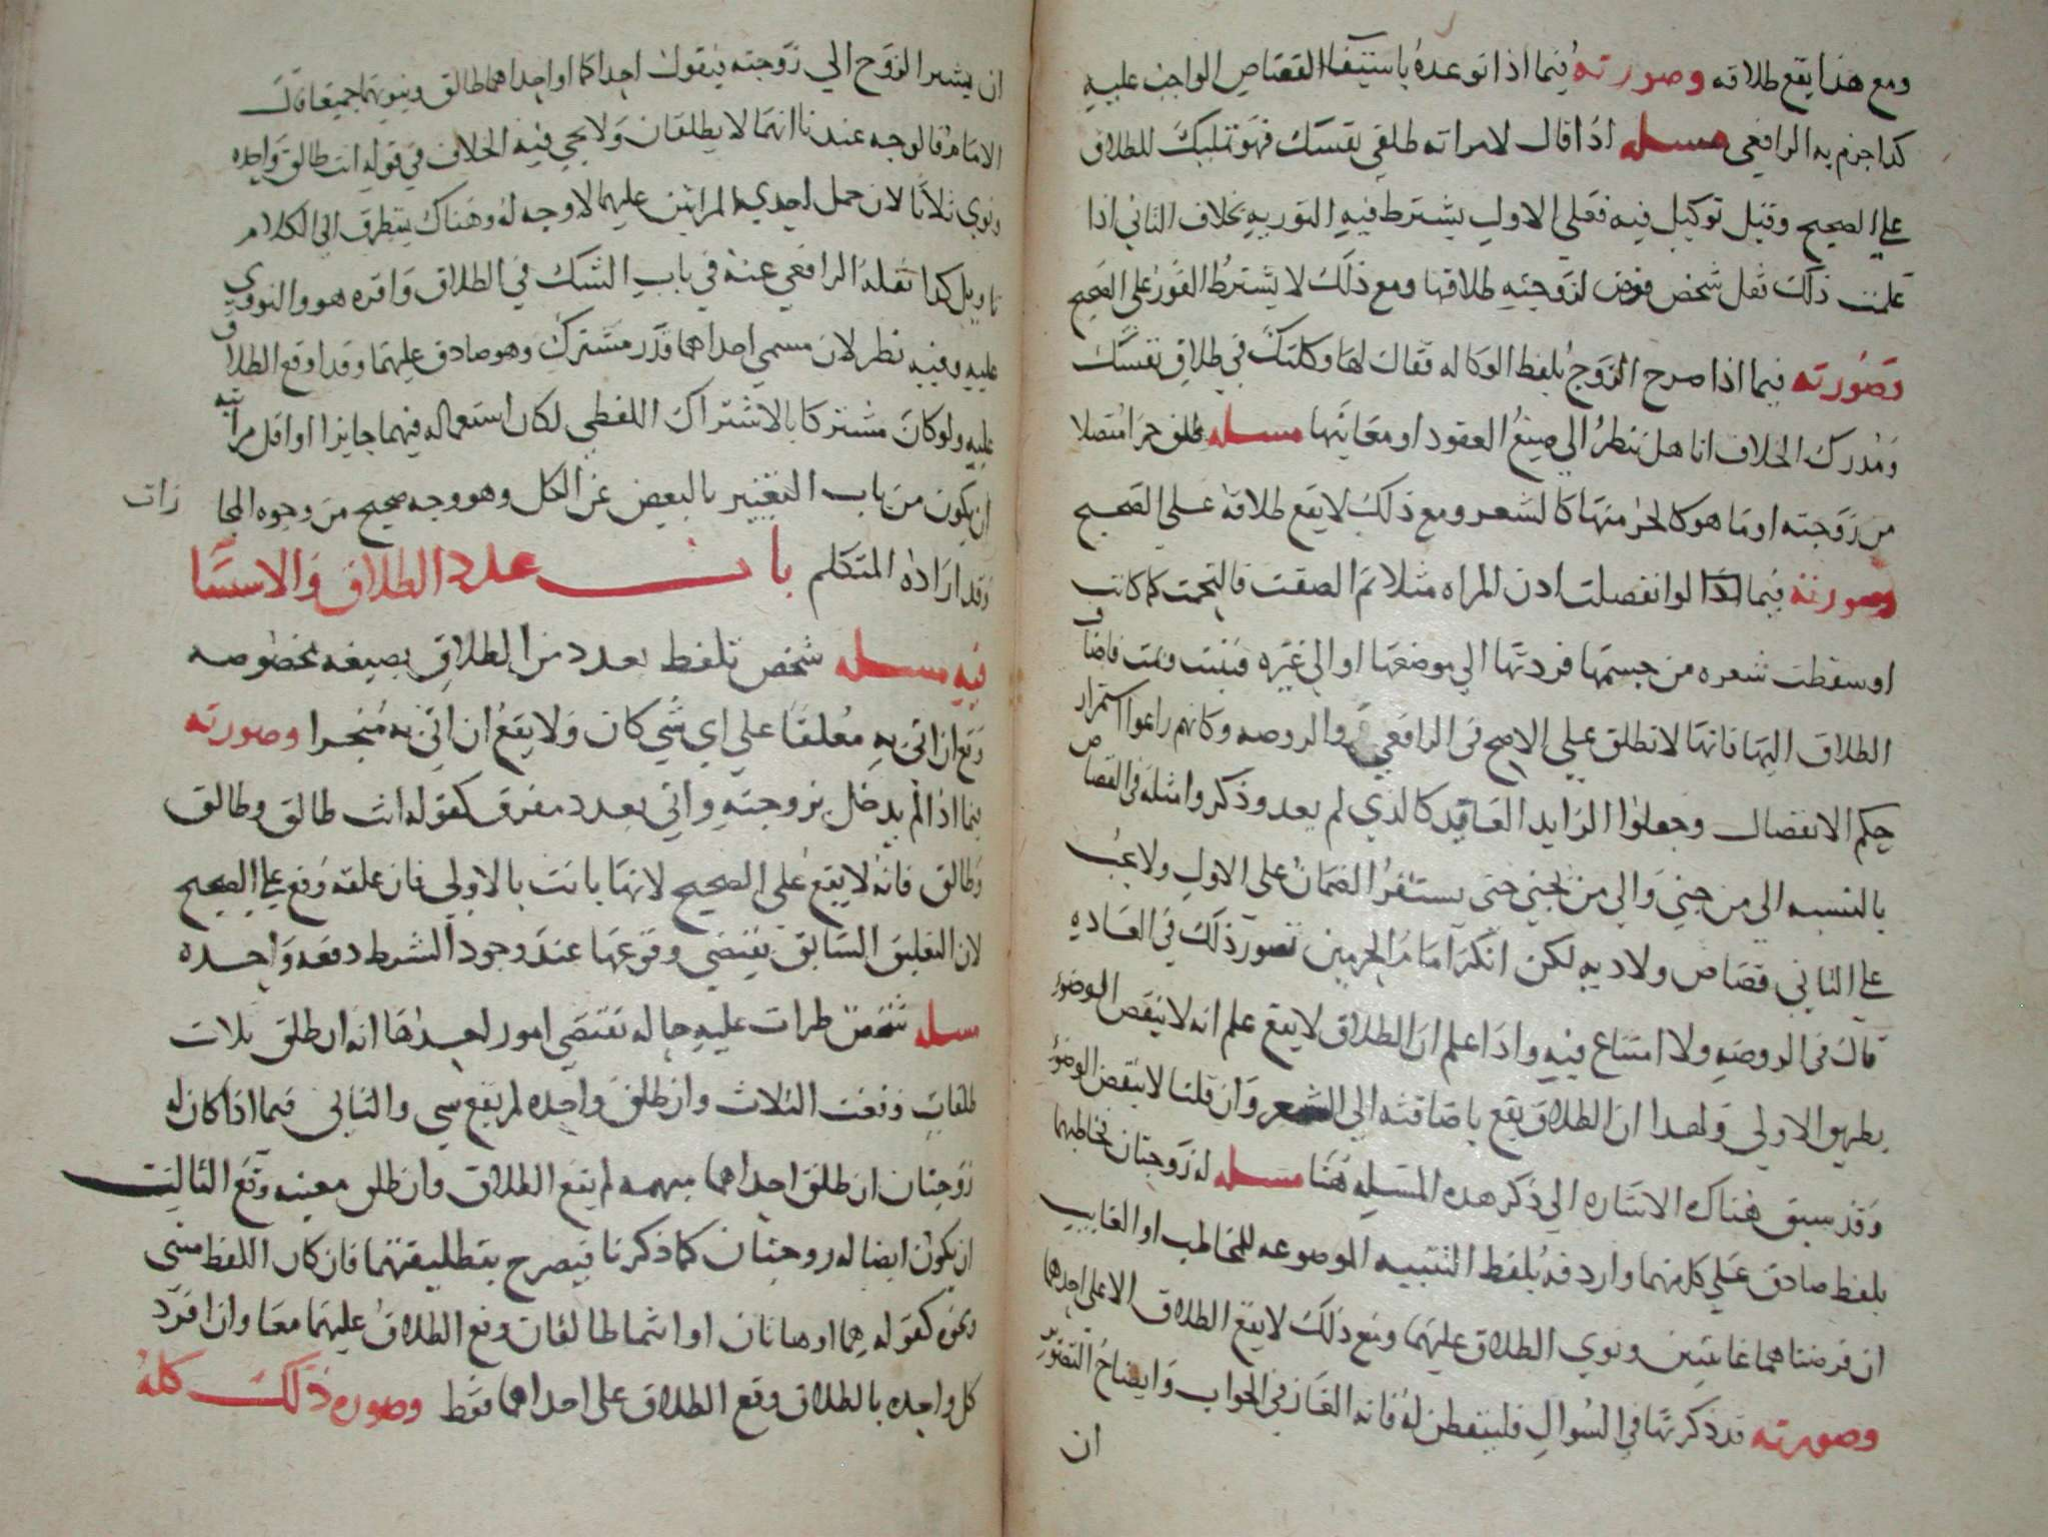 ومع هذا يقع طلاقه وصورته فيما اذا توعده باستيفا القصاص الواجب عليه
كدا جزم به الرافعي مسله اذا قال لامراته طلقي نفسك فهو تمليك للطلاق
علي الصحيح وقيل توكيل فيه فعلي الاول يشترط فيه الفوريه بخلاف الثاني اذا
علمت ذلك نقل شخص فوض لزوجته طلاقها ومع ذلك لا يشترط الفور علي الصحيح
وصورته فيما اذا صرح الزوج بلفظ الوكاله فقال لها وكلتك في طلاق نفسك
ومدرك الخلاف انا هل ننظر الي صيغ العقود او معانيها مسله طلق جزا متصلا
من زوجته او ما هو كالجز منها كالشعر ومع ذلك لا يقع طلاقه علي الصحيح
وصورته فيما اذا لو انفصلت ادن المراه مثلا ثم الصقت فالتحمت كما كانت
او سقطت شعره من جسمها فردتها الي موضعها او الي غيره فنبتت ونمت فاضاف
الطلاق اليها فانها لا تطلق علي الاصح في الرافعي والروضه وكانهم راعوا استمرار
حكم الانفصال وجعلوا الزايد العايد كالذي لم يعد وذكروا مثله في القصاص
بالنسبه الي من جني والي من جني حتي يستقر الضمان علي الاول ولا يجب
علي الثاني قصاص ولا ديه لكن انكر امام الحرمين تصور ذلك في العاده
قال في الروضه ولا امتناع فيه واذا علم ان الطلاق لا يقع علم انه لا ينقض الوضو
بطريق الاولي ولهدا ان الطلاق يقع باضافته الي الشعر وان قلنا لا ينقض الوضو
وقد سبق هناك الاشاره الي ذكر هده المسله هنا مسله له زوجتان خاطبهما
بلفظ صادق علي كل منهما واردفه بلفظ التثنيه الموضوعه للمخاطب او الغايب
ان فرضناهما غايبتين ونوي الطلاق عليهما ومع ذلك لا يقع الطلاق الا علي احداهما
وصورته قد ذكرتها في السوال فليتفطن له فانه الغاز في الجواب وايضاح التصوير
ان
ان يشير الزوج الي زوجته فيقول احداكما او احداهما طالق وينويهما جميعا قال
الامام فالوجه عندنا انهما لا يطلقان ولا يجي فيه الخلاف في قوله انت طالق واحده
ونوي ثلاثا لان حمل احدي المراتين عليهما لا وجه له وهناك يتطرق الي الكلام
تاويل كدا نقله الرافعي عنه في باب الشك في الطلاق واقره هو والنووي
عليه وفيه نظر لان مسمي احداهما قدر مشترك وهو صادق عليهما وقد اوقع الطلاق
عليه ولو كان مشتركا بالاشتراك اللفظي لكان استعماله فيهما جايزا او اقل مراتبه
ان يكون من باب التعبير بالبعض عن الكل وهو وجه صحيح من وجوه المجا زات
وقد اراده المتكلم باب عدد الطلاق والاستثنا
فيه مسله شخص تلفظ بعدد من الطلاق بصيغه مخصوصه
وقع ان اتي به معلقا علي اي شي كان ولا يقع ان اتي به منجزا وصورته
فيما اذا لم يدخل بزوجته واتي بعدد مفرق كقوله انت طالق وطالق
وطالق فانه لا يقع علي الصحيح لانها بانت بالاولي فان علقه وقع علي الصحيح
لان التعليق السابق يقتضي وقوعها عند وجود الشرط دفعه واحده
مسله شخص طرات عليه حاله تقتضي امور احدها انه ان طلق ثلاث
طلقات وقعت الثلاث وان طلق واحده لم يقع شي والثاني فيما اذا كان له
زوجتان ان طلق احداهما مبهمه لم يقع الطلاق وان طلق معينه وقع الثالث
ان يكون ايضا له زوجتان كما ذكرنا فيصرح بتطليقتهما فان كان اللفظ مثني
ونحوه كقوله هما او هاتان او انتما طالقان وقع الطلاق عليهما معا وان افرد
كل واحده بالطلاق وقع الطلاق علي احداهما فقط وصوره ذلك كله